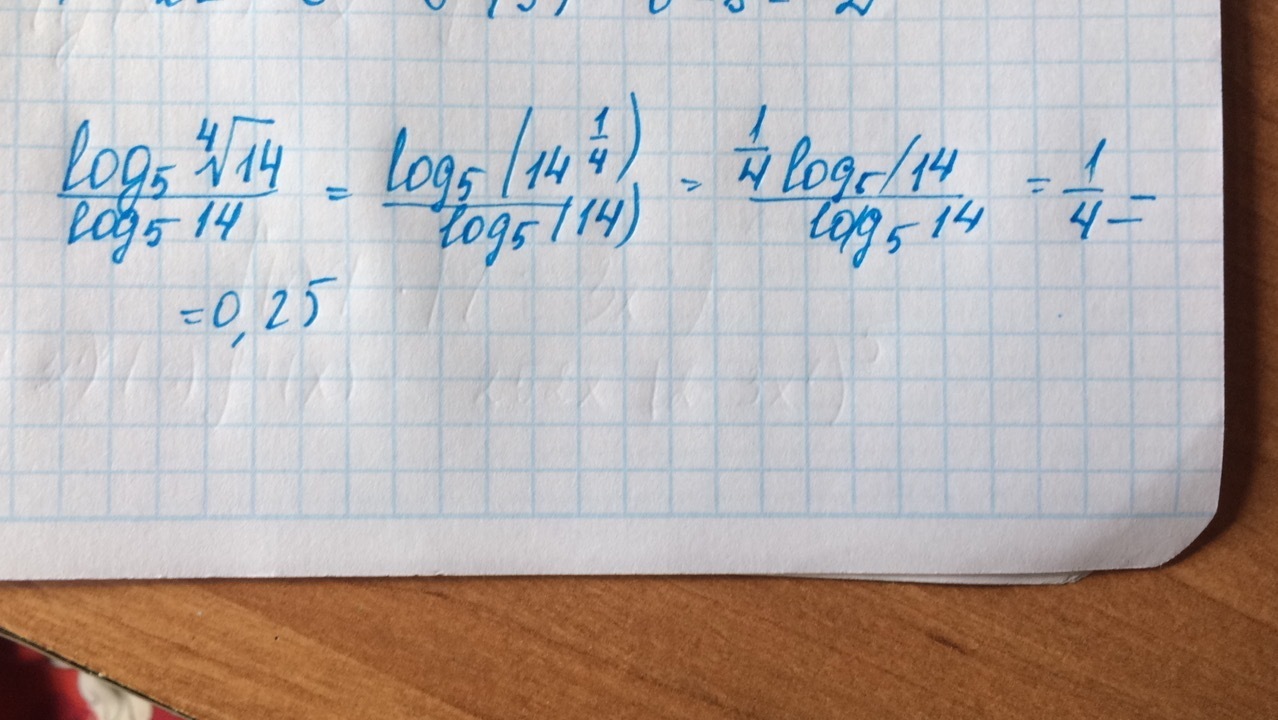 log₅ ⁴√14 / log₅ 14 = log₅ (14^(1/4)) / log₅ (14) = 1/4 log₅ (14 / log₅ 14 = 1/4 =
= 0,25